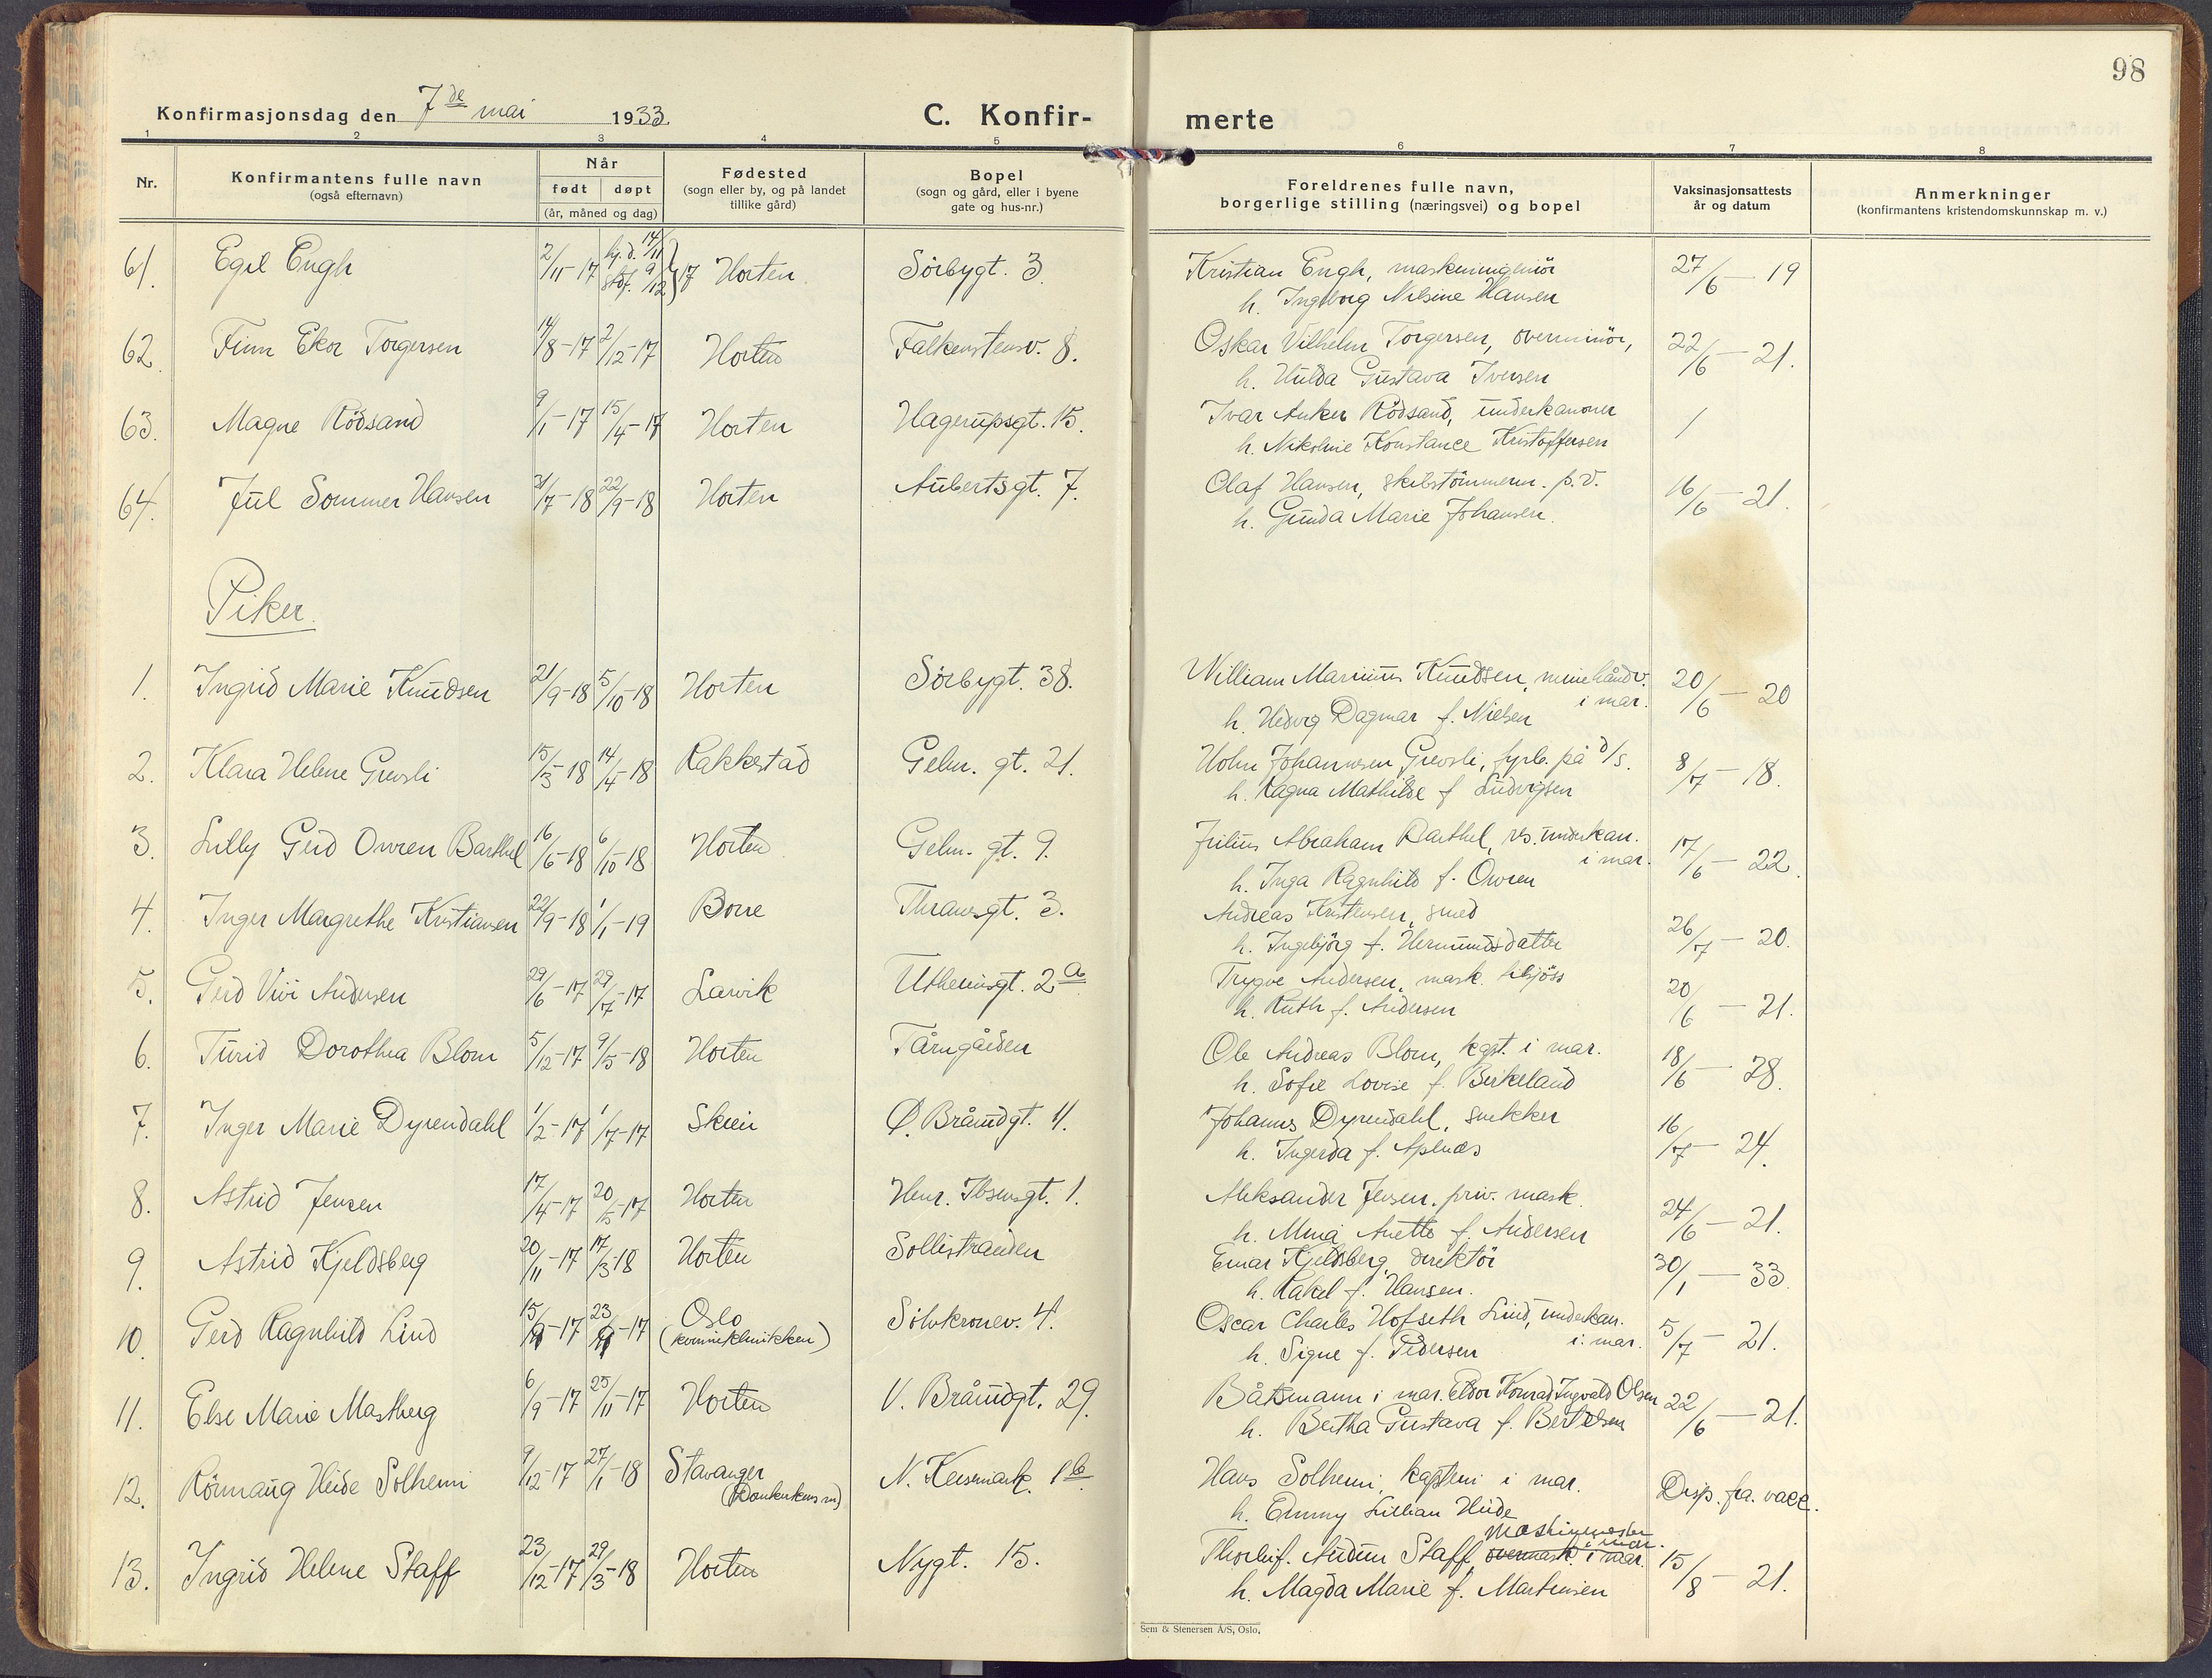 98
Konfirmasjonsdag den 7de mai 1933
C. Konfir-
merte
1 2 3 4 5 6 7 8
Nr.
Konfirmantens fulle navn
(også efternavn)
Når
født døpt
(år, måned og dag)
Fødested
(sogn eller by, og på landet
tillike gård)
Bopel
(sogn og gård, eller i byene
gate og hus-nr.)
Foreldrenes fulle navn,
borgerlige stilling (næringsvei) og bopel
Vaksinasjonsattests
år og datum
Anmerkninger
(konfirmantens kristendomskunnskap m. v.)
61. Egil Engh 2/11-17 hj.d. 14/11 stdf. 9/12 } 17 Horten Sörbygt. 3 Kristian Engh, maskiningeniör 27/6 - 19
h. Ingeborg Nilsine Hansen
62. Finn Ekor Torgersen 14/8-17 2/12-17 Horten Falkenstensv. 8. Oskar Vilhelm Torgersen, overminör, 22/6 - 21.
h. Hulda Gustava Iversen
63. Magne Rödsand 9/1-17 15/4-17 Horten Hagerupsgt. 15. Ivar Anker Rödsand, underkanoner /
h. Nikoline Konstance Kristoffersen
64. Jul Sommer Hansen 31/7-18 22/9-18 Horten Aubertsgt. 7. Olaf Hansen, skibstömmerm. p.v. 16/6 - 21.
h. Gunda Marie Johansen.
Piker.
1. Ingrid Marie Knudsen 21/9-18 5/10-18 Horten Sörbygt. 38. William Marinus Knudsen, minehåndv. 20/6 - 20
i mar.
h. Hedvig Dagmar f. Nielsen
2. Klara Helene Grevsli 15/3-18 14/4-18 Rakkestad Gelm. gt. 21. Holm Johannesen Grevsli, fyrb. på d/s. 8/7 - 18.
h. Ragna Mathilde f Ludvigsen
3. Lilly Gerd Owren Barthel 16/6-18 6/10-18 Horten Gelm. gt. 9. Julius Abraham Barthel, rs. underkan. 17/6 - 22.
i mar.
h. Inga Ragnhild f. Owren
4. Inger Margrethe Kristiansen 22/9-18 1/1-19 Borre Thranesgt. 3. Andreas Kristensen, smed 26/7 - 20.
h. Ingebjörg f. Hermundsdatter
5. Gerd Vivi Andersen 29/6-17 29/7-17 Larvik Uthemsgt. 2a Trygve Andersen, mask. 20/6 - 21.
h. Ruth f. Andersen
6. Turid Dorothea Blom 5/12-17 9/5-18 Horten Tårngården Ole Andreas Blom, kapt. i mar. 18/6 - 28.
h. Sofie Lovise f. Birkeland
7. Inger Marie Dyrendahl 1/2-17 1/7-17 Skien Ø. Bråundgt. 11. Johannes Dyrendahl, snekker 16/7 - 24.
h. Ingerda f. Apenæs
8. Astrid Jensen 17/4-17 20/5-17 Horten Henr. Ibsensgt. 1. Aleksander Jensen, priv. mask. 24/6 - 21.
h. Mina Anette f. Andersen
9. Astrid Kjeldsberg 20/11-17 17/3-18 Horten Sollistranden Einar Kjeldsberg, direktör 30/1 - 33.
h. Rakel f. Hansen.
10. Gerd Ragnhild Lind 15/9-17 23/9-17 Oslo Sölvkronev. 4. Oscar Charles Hofseth Lind, underkan. 5/7 - 21.
(kvinneklinikken) i. mar.
h. Signe f. Pedersen
11. Else Marie Mastberg 6/9-17 25/11-17 Horten V. Bråundgt. 29. Båtsmann i mar. Eldor Konrad Ingvald Olsen 22/6 - 21.
h. Bertha Gustava f. Bertelsen
12. Rönnaug Heide Solheim 9/12-17 27/1-18 Stavanger N. Keisemark. 1b Hans Solheim, kaptein i mar. Disp. fra. vacc.
(Domkirkens m) h. Emmy Lillian Heide
maskinmester
i mar.
13. Ingrid Helene Staff 23/12-17 29/3-18 Horten Nygt. 15. Thorleif. Audun Staff, overmask. i mar. 15/8 - 21.
h. Magda Marie f. Martinsen
Sem & Stenersen A/S, Oslo.